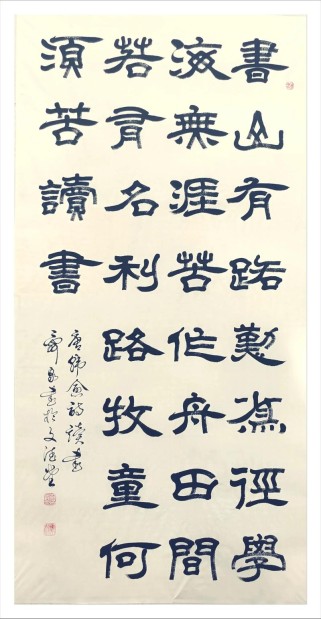 書山有路勤為徑學
海無涯苦作舟田間
若有名利路牧童何
須苦讀書
唐韓愈詩讀書
書於文堂